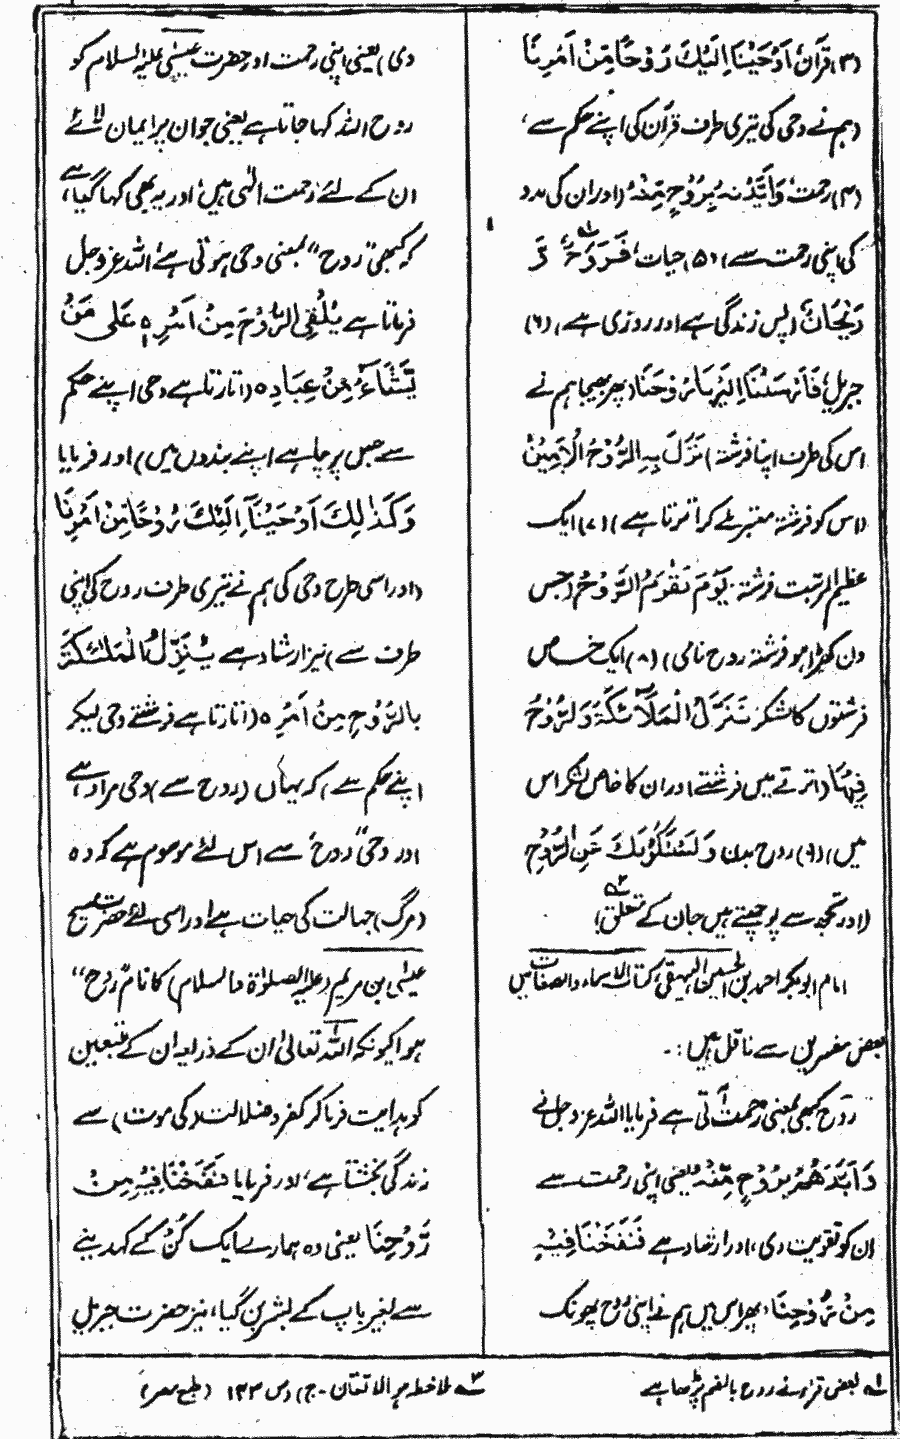 (۳) قرآن، اَوْحَيْنَا اِلَيْكَ رُوْحًا مِّنْ اَمْرِنَا
(ہم نے وحی کی تیری طرف قرآن کی اپنے حکم سے،
(۴) رحمت، وَاَيَّدْنٰہُ بِرُوْحٍ مِّنْہُ (اور ان کی مدد
کی اپنی رحمت سے) (۵) حیات، فَرَوْحٌ لہ وَّ
رَیْحَانٌ (پس زندگی ہے اور روزی ہے) (۶)
جبریل، فَاَرْسَلْنَا اِلَيْہَا رُوْحَنَا (پھر بھیجا ہم نے
اس کی طرف اپنا فرشتہ) نَزَلَ بِہِ الرُّوْحُ الْاَمِيْنُ
(اس کو فرشتہ معتبر لے کر اترتا ہے) (۷) ایک
عظیم المرتبت فرشتہ، يَوْمَ يَقُوْمُ الرُّوْحُ (جس
دن کھڑا ہو فرشتہ روح نامی) (۸) ایک خاص
فرشتوں کا لشکر تَنَزَّلُ الْمَلَآئِكَةُ وَالرُّوْحُ
فِيْہَا (اترتے ہیں فرشتے اور ان کا خاص لشکر اس
میں) (۹) روح بدن، وَلَيَسْئَلُوْنَكَ عَنِ الرُّوْحِ
(اور تجھ سے پوچھتے ہیں جان کے متعلق) ۲ہ
امام ابوبکر احمد بن الحسین البیہقی، کتاب الاسماء والصفات میں
بعض مفسرین سے ناقل ہیں:-
روح کبھی بمعنی رحمت آتی ہے فرمایا اللہ عزوجل نے
وَاَيَّدَہُمْ بِرُوْحٍ مِّنْہُ یعنی اپنی رحمت سے
ان کو تقویت دی، اور ارشاد ہے فَنَفَخْنَا فِيْہِ
مِنْ رُّوْحِنَا، پھر اس میں ہم نے اپنی روح پھونک
دی) یعنی اپنی رحمت اور حضرت عیسیٰ علیہ السلام کو
روح اللہ کہا جاتا ہے یعنی جو ان پر ایمان لائے
ان کے لئے رحمت الٰہی ہیں، اور یہ بھی کہا گیا ہے،
کہ کبھی "روح" بمعنی وحی ہوتی ہے، اللہ عزوجل
فرماتا ہے يُلْقِى الرُّوْحَ مِنْ اَمْرِہٖ عَلٰى مَنْ
يَّشَآءُ مِنْ عِبَادِہٖ (اتارتا ہے وحی اپنے حکم
سے جس پر چاہے اپنے بندوں میں) اور فرمایا
وَكَذٰلِكَ اَوْحَيْنَآ اِلَيْكَ رُوْحًا مِّنْ اَمْرِنَا
(اور اسی طرح وحی کی ہم نے تیری طرف روح کی اپنی
طرف سے) نیز ارشاد ہے يُنَزِّلُ الْمَلٰٓئِكَةَ
بِالرُّوْحِ مِنْ اَمْرِہٖ (اتارتا ہے فرشتے وحی لیکر
اپنے حکم سے) کہ یہاں (روح سے) وحی مراد ہے،
اور وحی "روح" سے اس لئے موسوم ہے کہ وہ
(مرگ) جہالت کی حیات ہے اور اسی لئے حضرت مسیح
عیسٰی بن مریم (علیہ الصلوٰۃ والسلام) کا نام "روح"
ہوا کیونکہ اللہ تعالیٰ ان کے ذریعہ ان کے متبعین
کو ہدایت فرما کر کفر و ضلالت (کی موت) سے
زندگی بخشتا ہے، اور فرمایا فَنَفَخْنَا فِيْہِ مِنْ
رُّوْحِنَا یعنی وہ ہمارے ایک کُن کے کہہ دینے
سے بغیر باپ کے بشر بن گیا، نیز حضرت جبریل
۱ہ بعض قراء نے روح بالضم پڑھا ہے
۲ہ ملاحظہ ہو الاتقان - ج ۱ ص ۱۴۳ (طبع مصر)